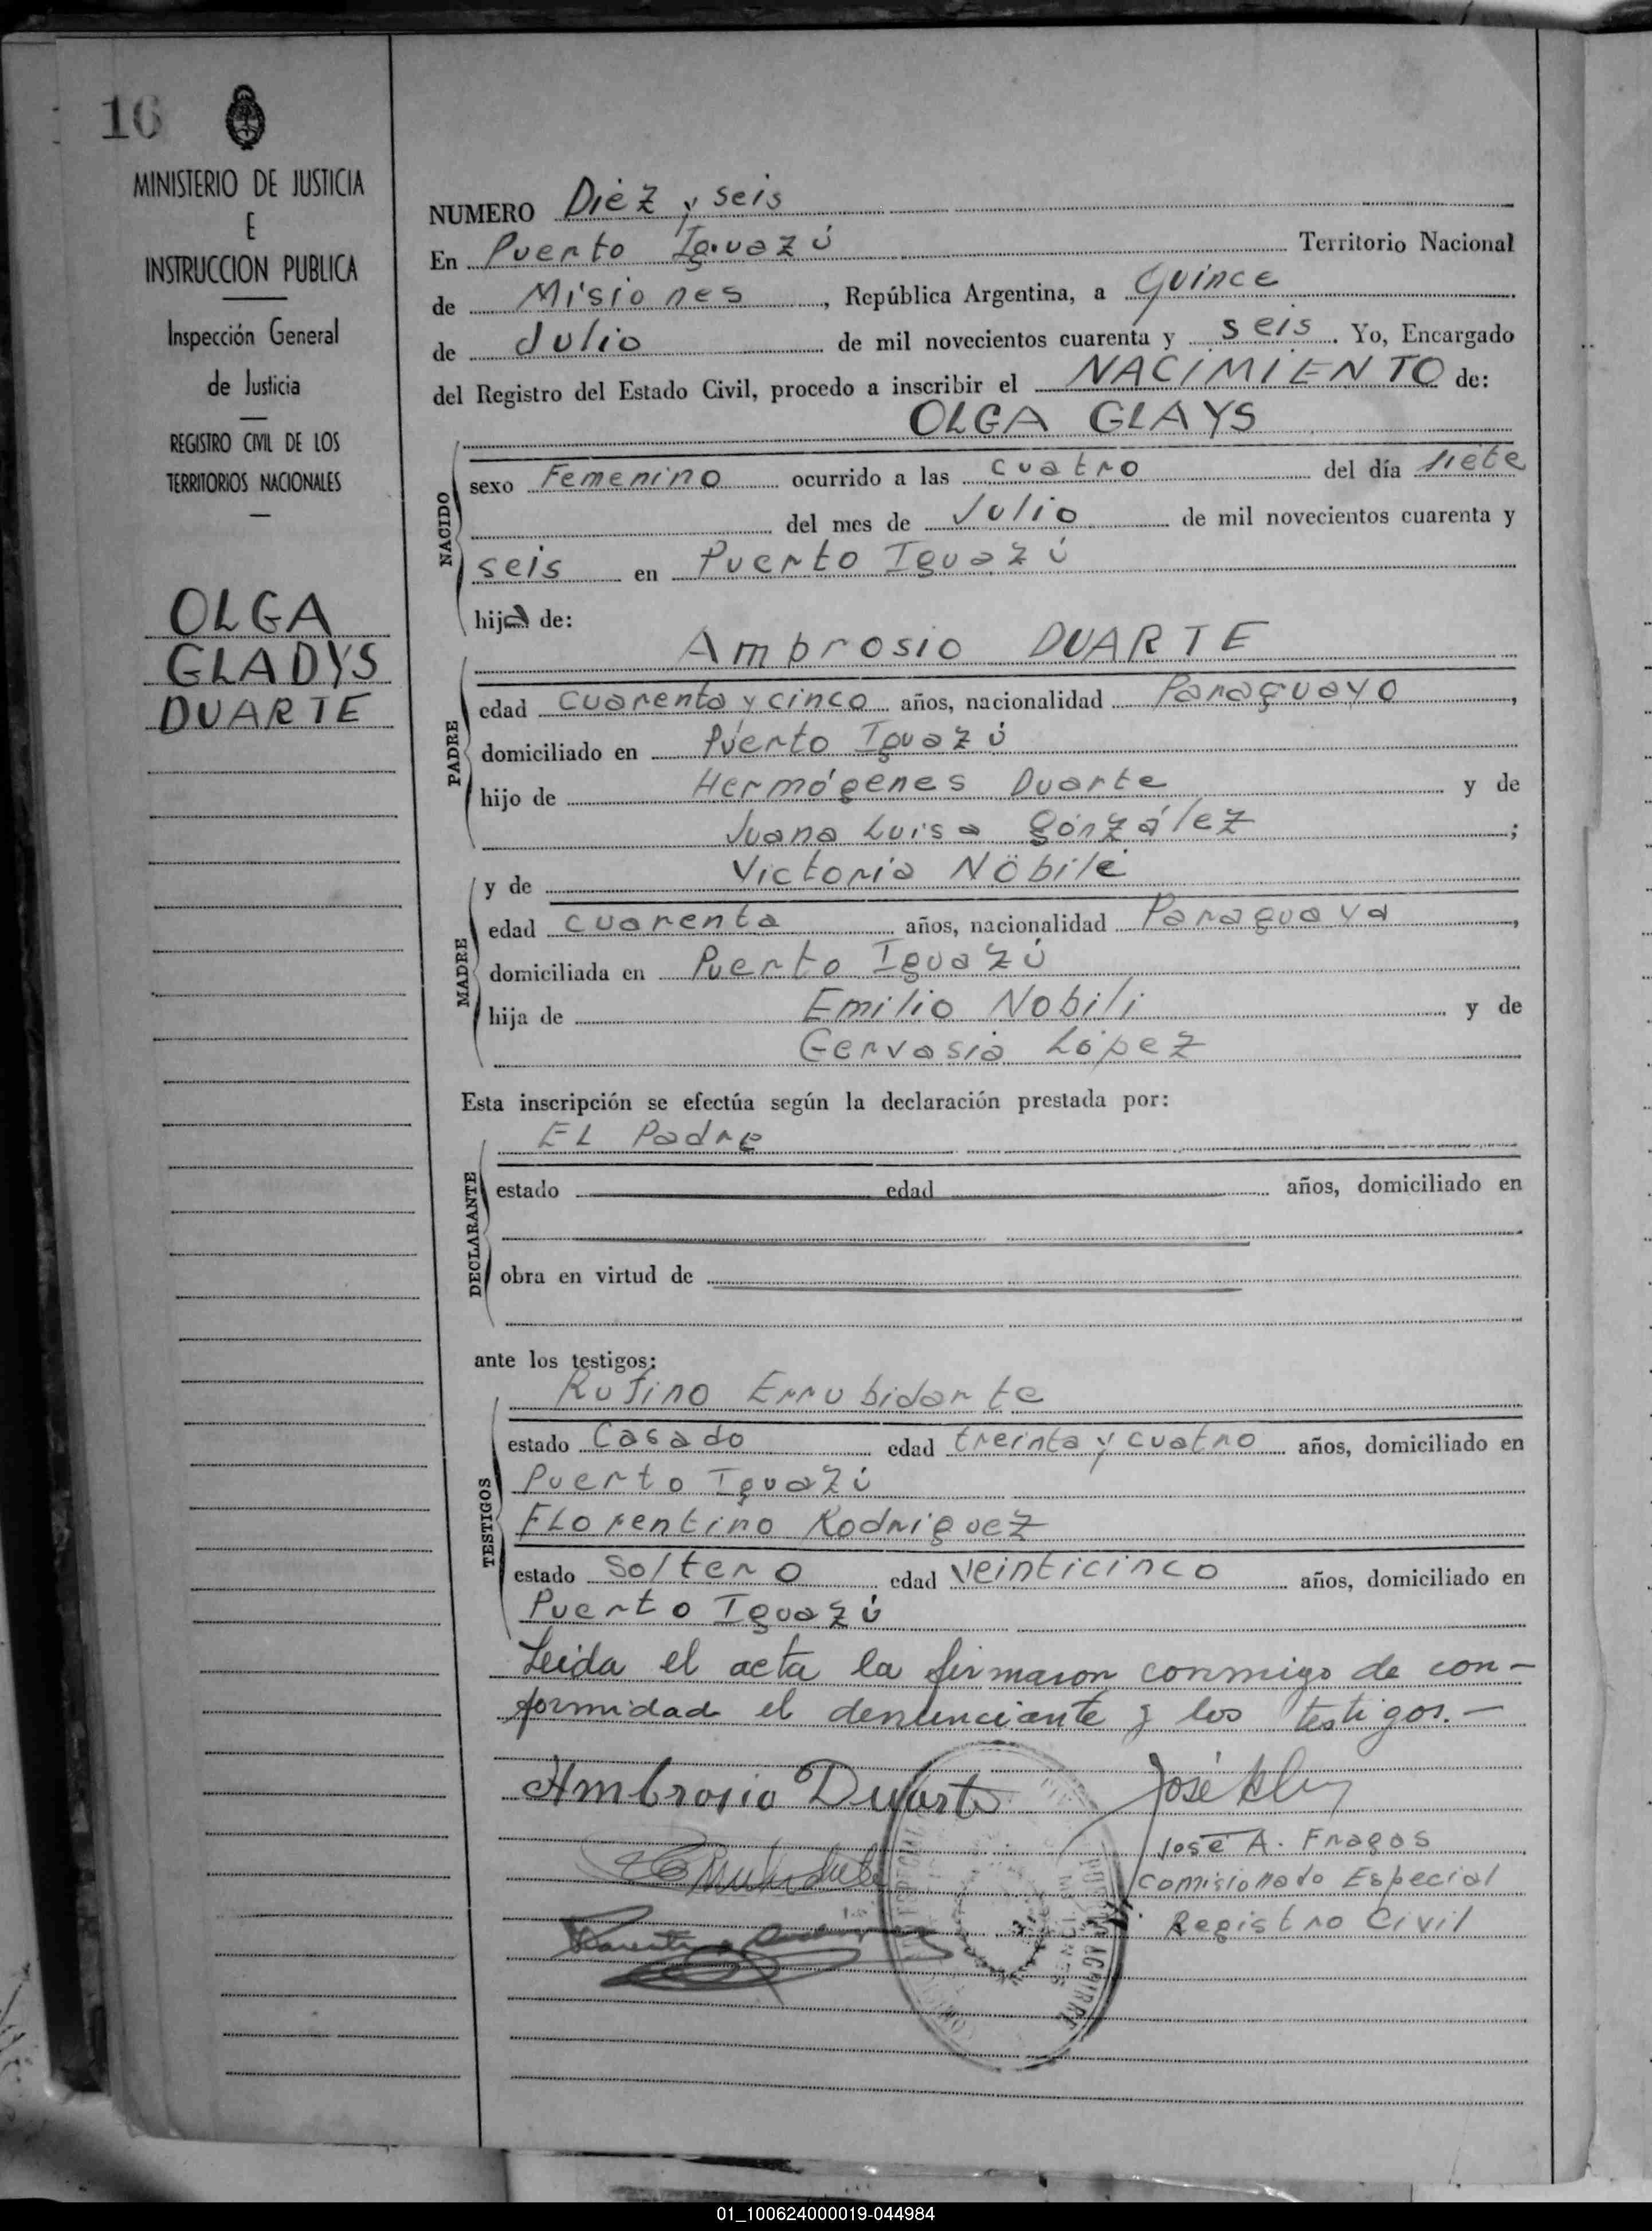 16
MINISTERIO DE JUSTICIA
E
INSTRUCCION PUBLICA
Inspección General
de Justicia
REGISTRO CIVIL DE LOS
TERRITORIOS NACIONALES
OLGA
GLADYS
DUARTE
NUMERO Diez y seis
En Puerto Iguazú Territorio Nacional
de Misiones, República Argentina, a Quince
de Julio de mil novecientos cuarenta y seis. Yo, Encargado
del Registro del Estado Civil, procedo a inscribir el NACIMIENTO de:
OLGA GLAYS
NACIDO
sexo Femenino ocurrido a las cuatro del día siete
del mes de Julio de mil novecientos cuarenta y
seis en Puerto Iguazú
hija de:
Ambrosio DUARTE
PADRE
edad cuarenta y cinco años, nacionalidad Paraguayo,
domiciliado en Puerto Iguazú
hijo de Hermógenes Duarte y de
Juana Luisa González;
y de Victoria Nóbile
MADRE
edad cuarenta años, nacionalidad Paraguaya,
domiciliada en Puerto Iguazú
hija de Emilio Nobili y de
Gervasia López
Esta inscripción se efectúa según la declaración prestada por:
EL Padre
DECLARANTE
estado edad años, domiciliado en
obra en virtud de
ante los testigos:
Rufino Errubidarte
TESTIGOS
estado Casado edad treinta y cuatro años, domiciliado en
Puerto Iguazú
FLorentino Rodriguez
estado soltero edad veinticinco años, domiciliado en
Puerto Iguazú
Leida el acta la firmaron conmigo de con-
formidad el denunciante y los testigos.-
Ambrosio Duarte
José A. Fragas
Comisionado Especial
Registro Civil
01_100624000019-044984